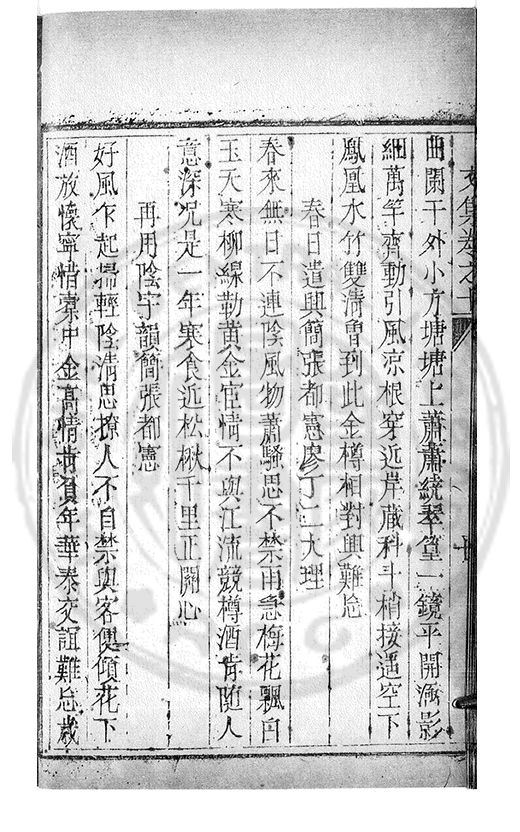 文集卷之十
廿
曲闌干外小方塘塘上蕭蕭繞翠篁一鏡平開涵影
細萬竿齊動引風涼根穿近岸藏科斗梢接遥空下
鳳凰水竹雙清曾到此金樽相對興難忘
春日遣興簡張都憲廖丁二大理
春來無日不連陰風物蕭騷思不禁雨急梅花飄白
玉天寒柳線勒黄金宦情不與江流競樽酒肯随人
意深况是一年寒食近松楸千里正關心
再用陰字韻簡張都憲
好風乍起掃輕陰清思撩人不自禁與客便傾花下
酒放懷寧惜橐中金高情肯負年華泰交誼難忘歲